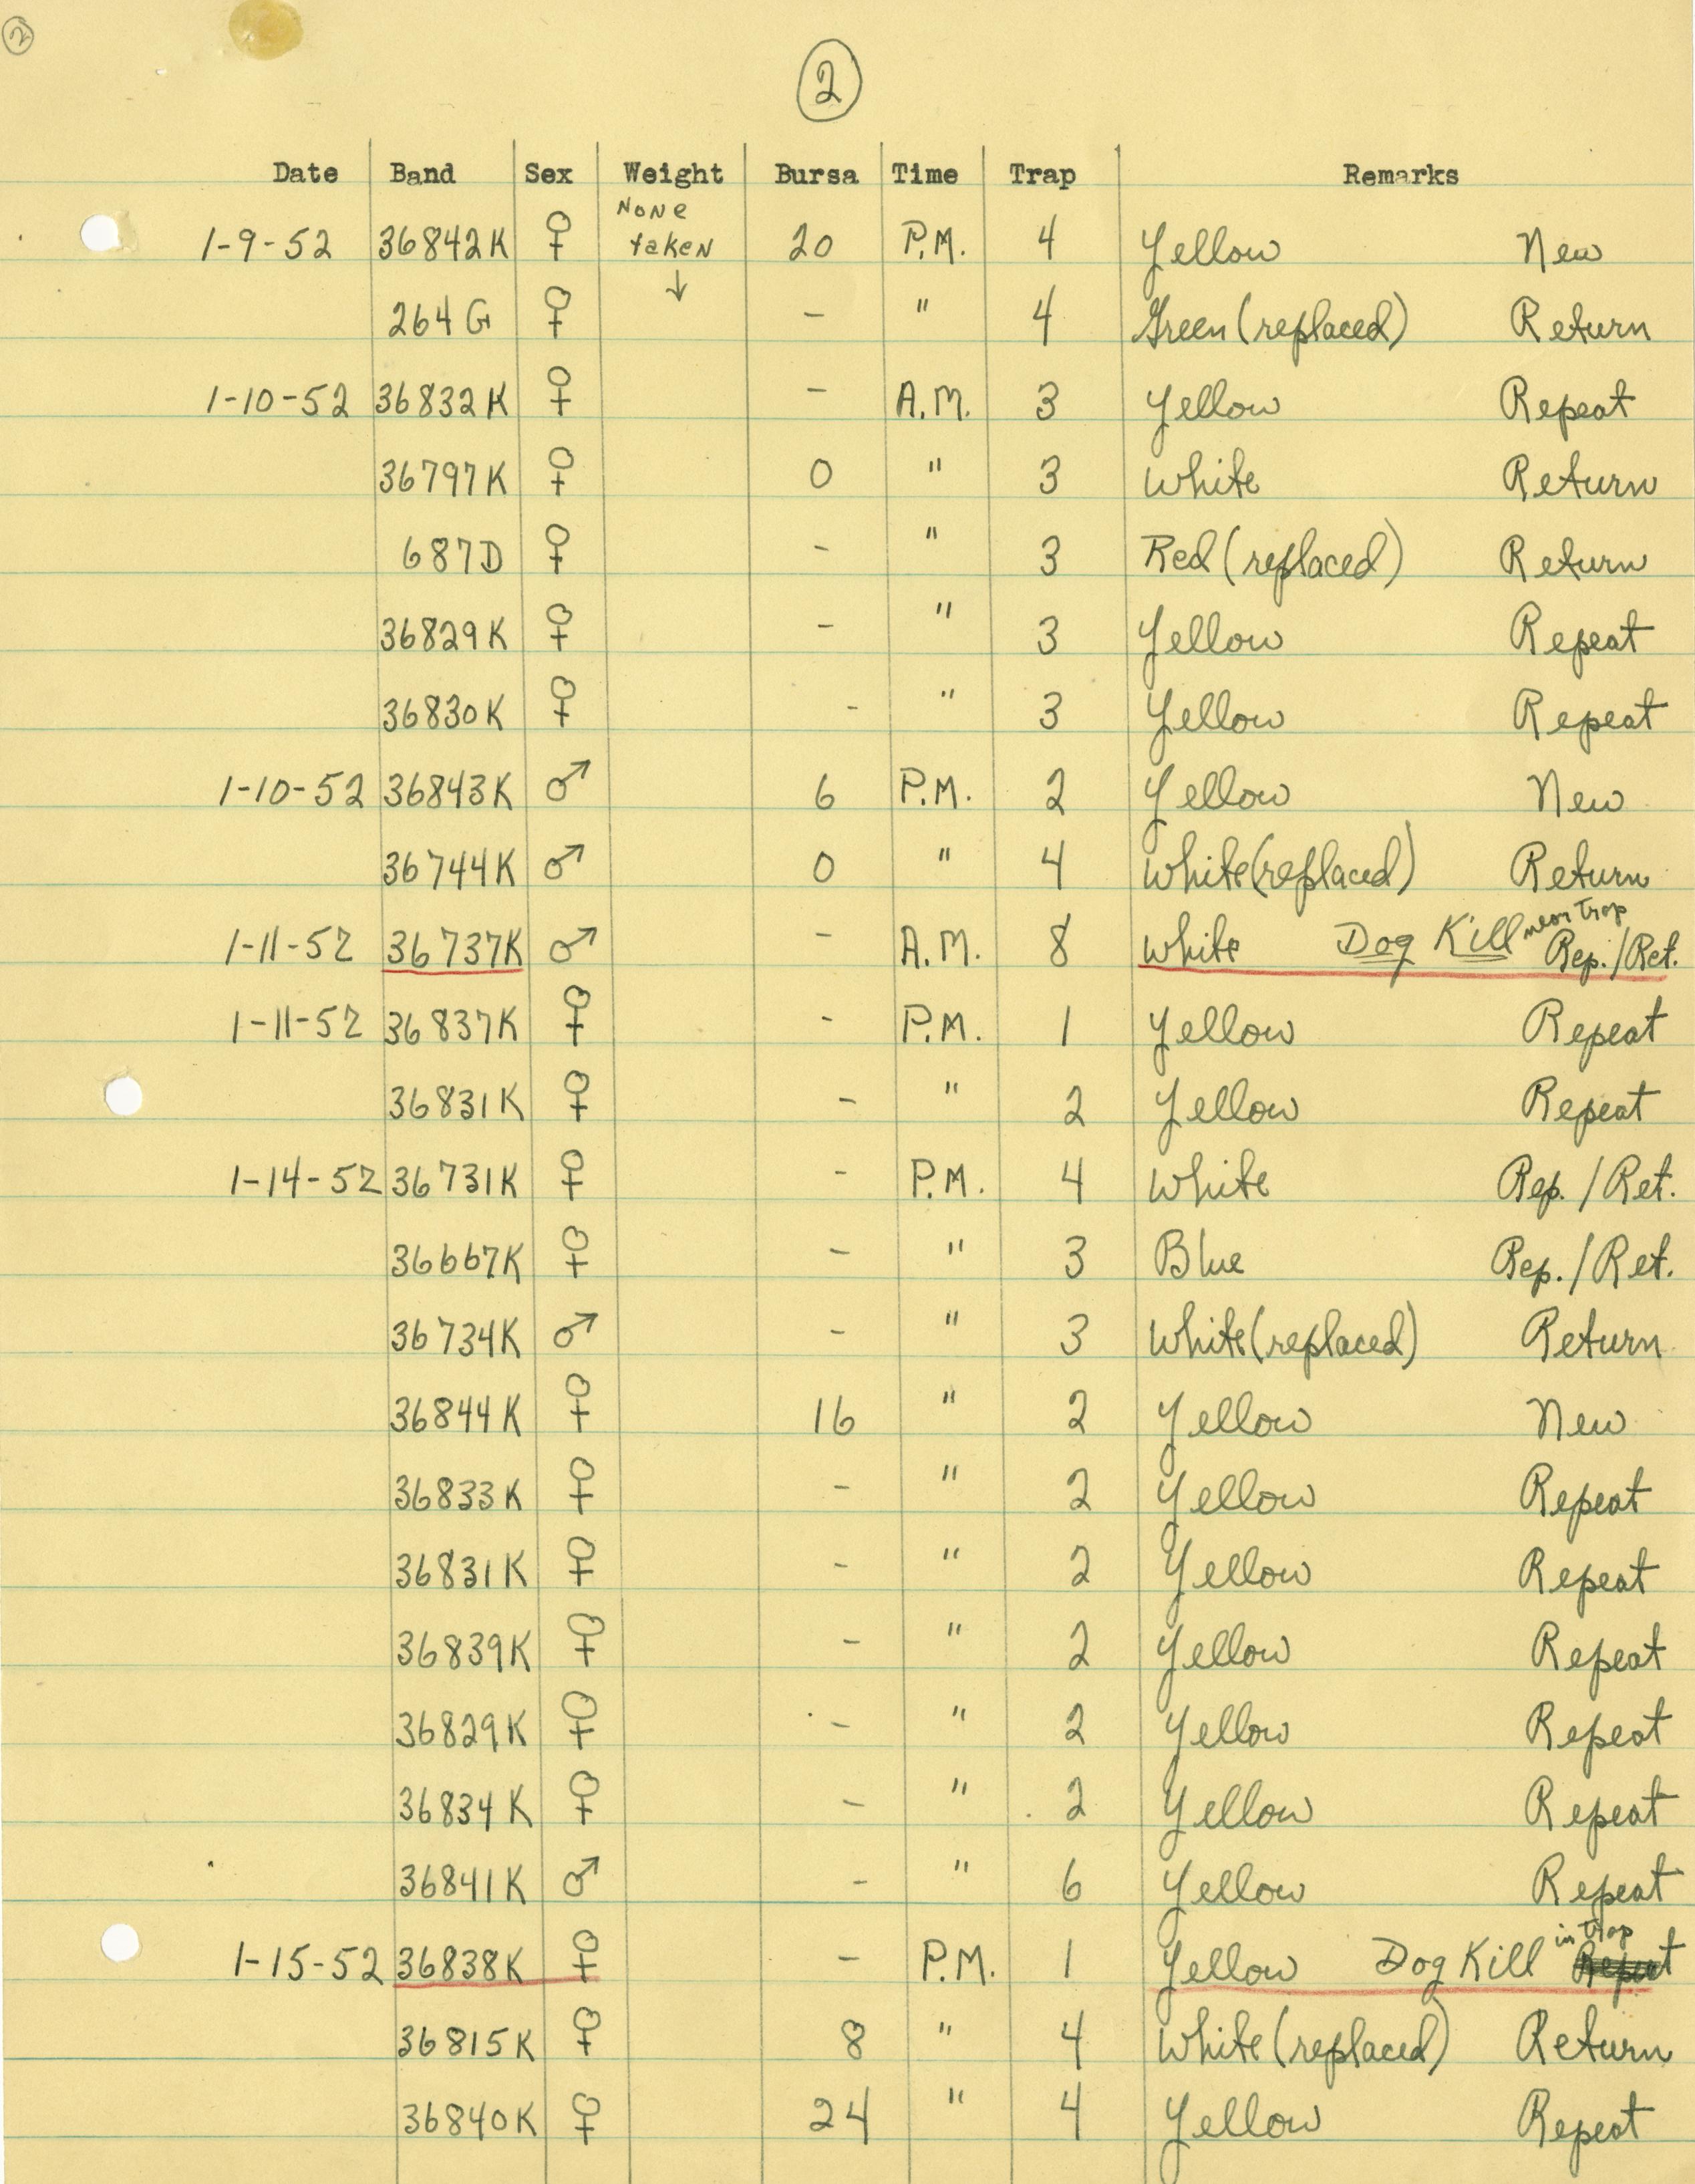 2
2
Date Band Sex Weight Bursa Time Trap Remarks
None
1-9-52 36842K ♀ taken 20 P.M. 4 Yellow New
↓
264G ♀ - " 4 Green (replaced) Return
1-10-52 36832K ♀ - A.M. 3 Yellow Repeat
36797K ♀ 0 " 3 White Return
687D ♀ - " 3 Red (replaced) Return
36829K ♀ - " 3 Yellow Repeat
36830K ♀ - " 3 Yellow Repeat
1-10-52 36843K ♂ 6 P.M. 2 Yellow New
36744K ♂ 0 " 4 White (replaced) Return
1-11-52 36737K ♂ - A.M. 8 White Dog Kill near trap Rep./Ret.
1-11-52 36837K ♀ - P.M. 1 Yellow Repeat
36831K ♀ - " 2 Yellow Repeat
1-14-52 36731K ♀ - P.M. 4 White Rep./Ret.
36667K ♀ - " 3 Blue Rep./Ret.
36734K ♂ - " 3 White (replaced) Return
36844K ♀ 16 " 2 Yellow New
36833K ♀ - " 2 Yellow Repeat
36831K ♀ - " 2 Yellow Repeat
36839K ♀ - " 2 Yellow Repeat
36829K ♀ - " 2 Yellow Repeat
36834K ♀ - " 2 Yellow Repeat
36841K ♂ - " 6 Yellow Repeat
1-15-52 36838K ♀ - P.M. 1 Yellow Dog Kill in trap Repeat
36815K ♀ 8 " 4 White (replaced) Return
36840K ♀ 24 " 4 Yellow Repeat